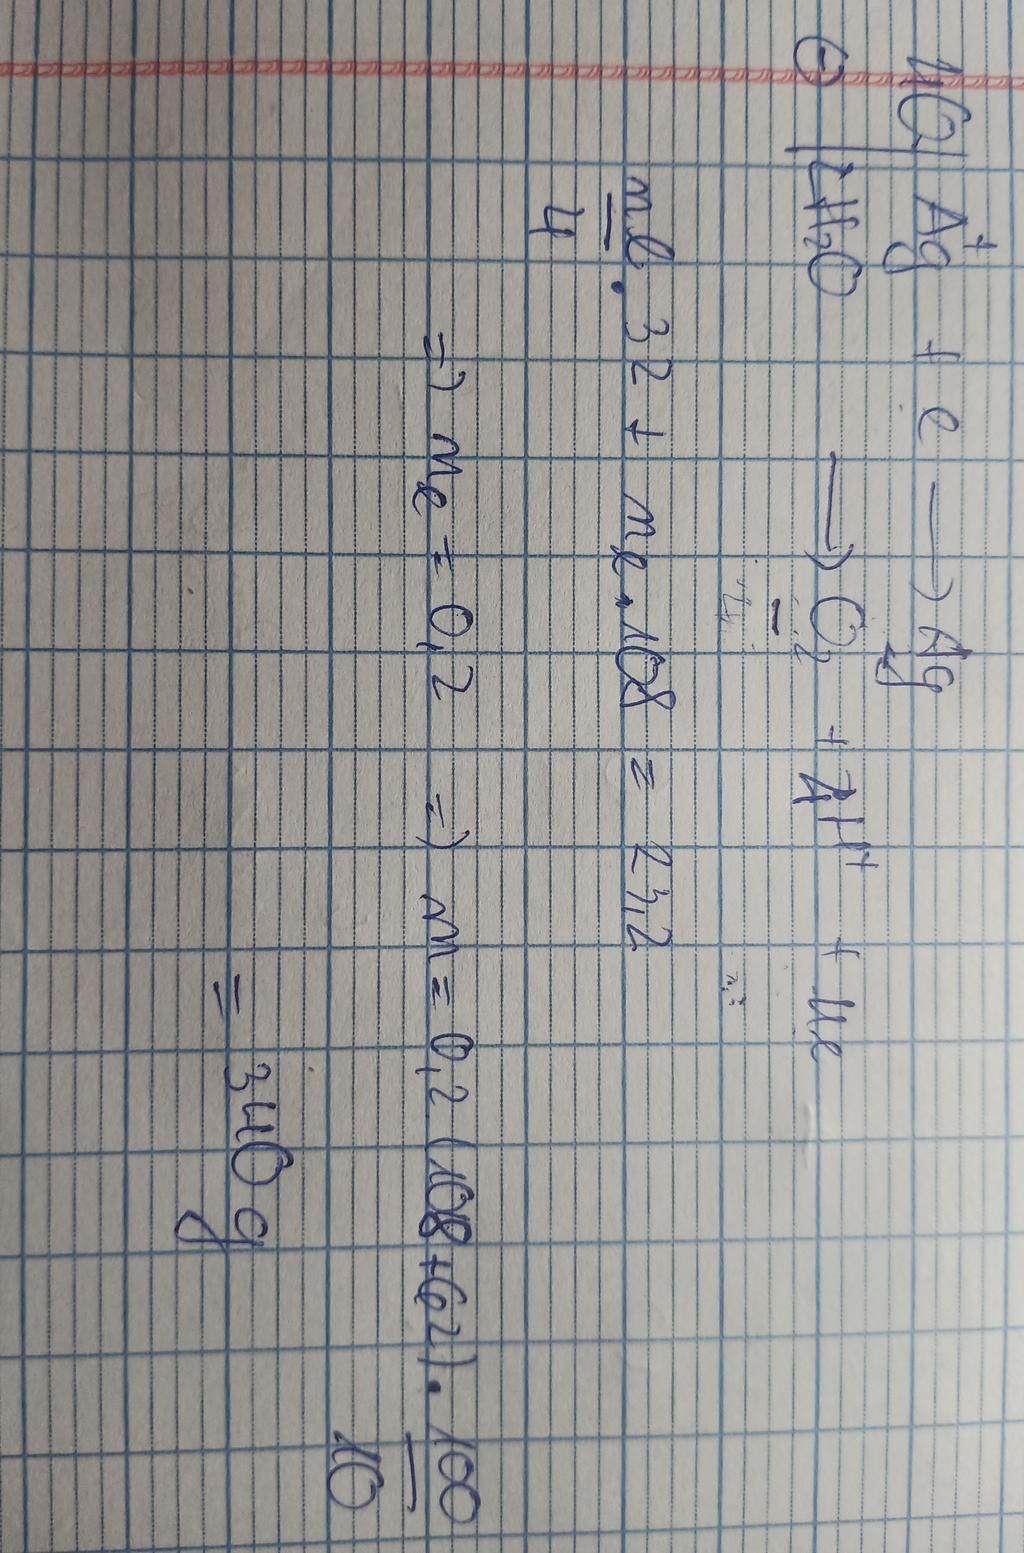 4Q| Ag⁺ + e → Ag
⊖ | 2H₂O → O₂ + 4H⁺ + 4e
ne/4 . 32 + ne . 108 = 23,2
=> ne = 0,2 => m = 0,2 (108 + 62) . 100/10
= 340 g